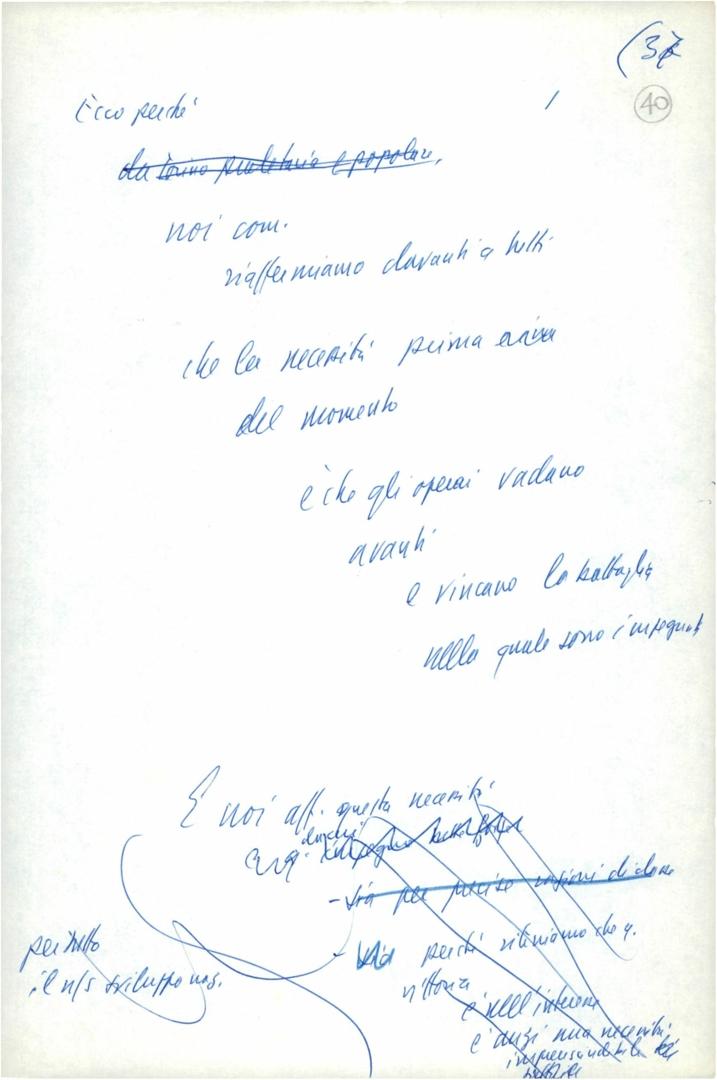 (37
40
Ecco perché /
da Torino proletaria e popolare,
noi com.
riaffermiamo davanti a tutti
che la necessità prima
del momento
è che gli operai vadano
avanti
e vincano la battaglia
nella quale sono impegnati
E noi aff. questa necessità
anche
impegno
- sia per precise ragioni di classe
- perché riteniamo che q.
vittoria
è nell'interesse
è anzi una necessità
per tutto
il n/s sviluppo naz.